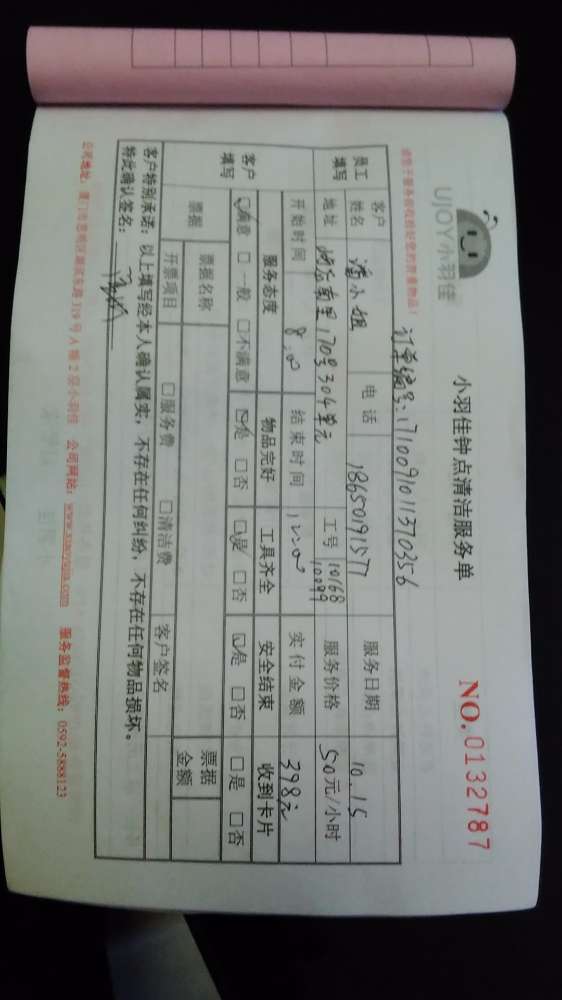 UJOY小羽佳
小羽佳钟点清洁服务单
NO.0132787
请您于服务前收捡好您的贵重物品!
订单编号:1710091011370356
员工填写
客户姓名 潘小姐 电话 18650191577 服务日期 10.15
地址 170号304单元 工号 10168 10099 服务价格 50元/小时
开始时间 8:00 结束时间 12:00 实付金额 398元
客户填写
服务态度 物品完好 工具齐全 安全结束 收到卡片
☑满意 □一般 □不满意 ☑是 □否 ☑是 □否 ☑是 □否 □是 □否
票据 票据名称 票据金额
开票项目 □服务费 □清洁费 客户签名
客户特别承诺:以上填写经本人确认属实,不存在任何纠纷,不存在任何物品损坏。
特此确认签名:
公司地址:厦门市思明区湖滨东路319号A幢2层小羽佳 公司网站:www.xiaoyujia.com 服务监督热线:0592-5888123